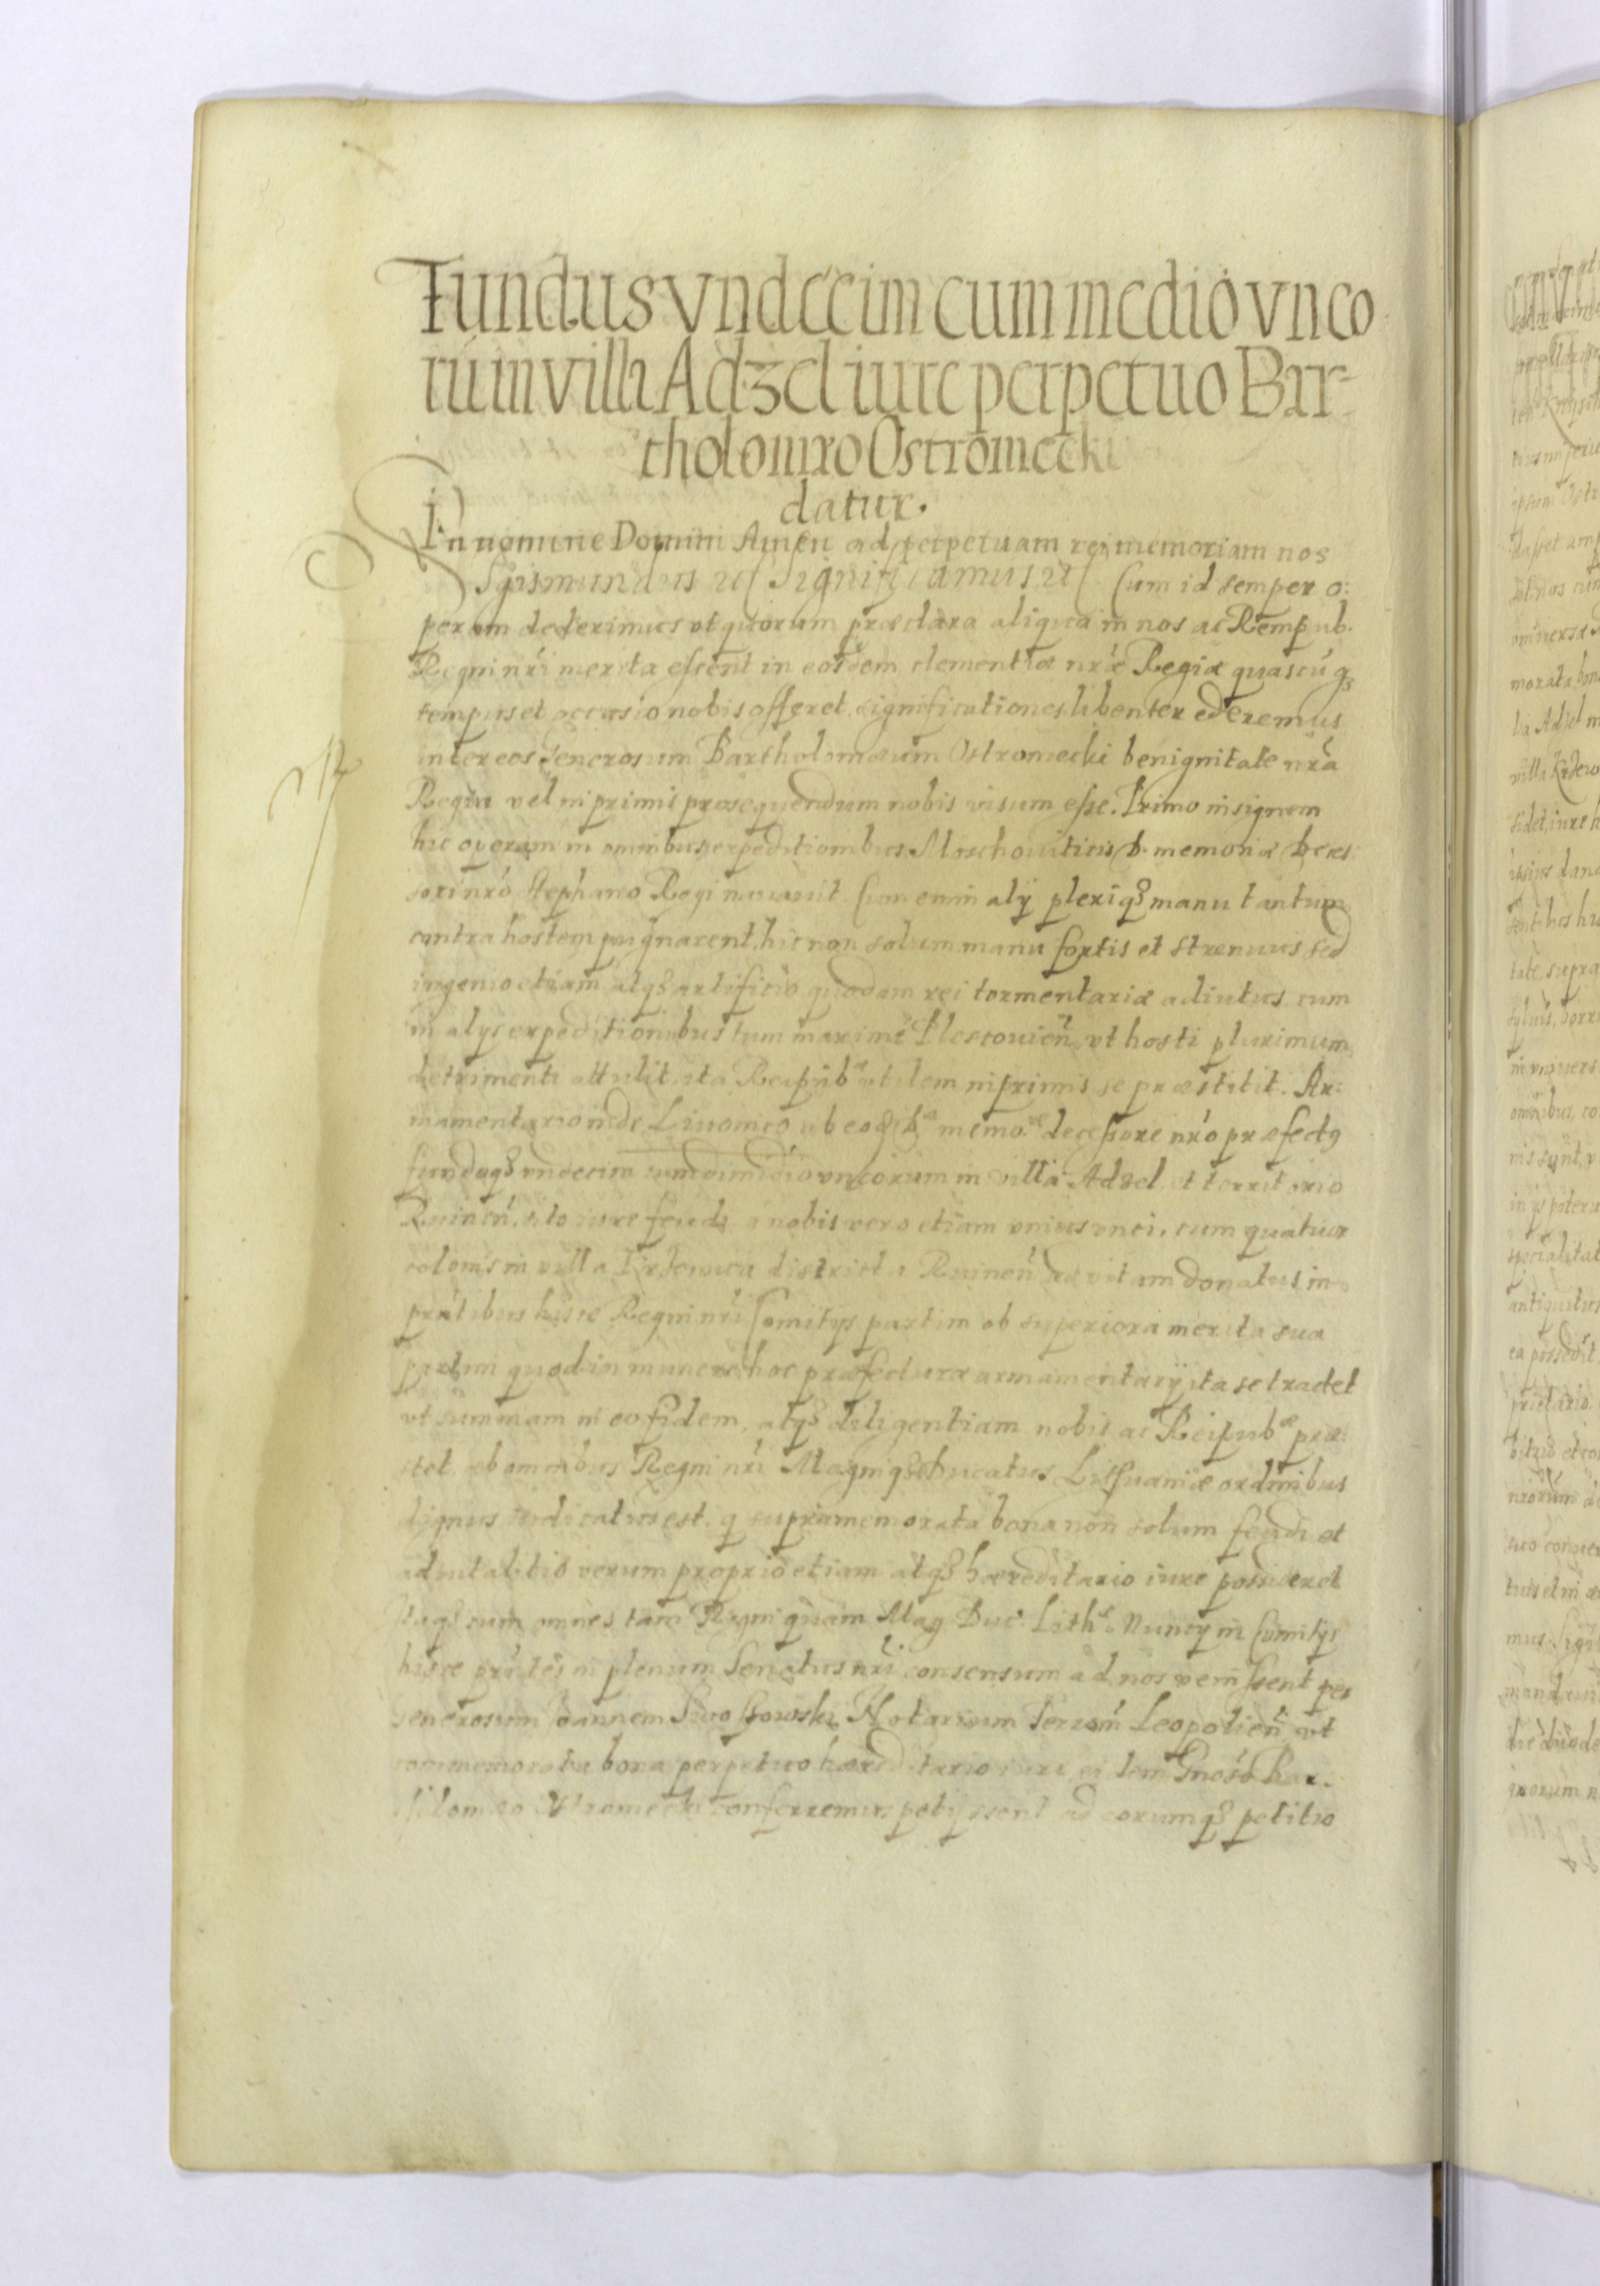 Fundus vndecim cum medio vnco
rú in villa Adzel iure perpetuo Bar-
tholomæo Ostromecki
datur.
In nomine Domini Amen ad perpetuam rei memoriam nos
Sigismundus etc Significamus etc Cum id semper o:
peram dederimus vt quorum præclara aliqua in nos ac Rempub.
Regni nrí merita essent in eosdem clementiæ nrǽ Regiæ quascúq3
tempus et occasio nobis offeret significationes libenter ederemus
inter eos Generosum Bartholomæum Ostromecki benignitate nrá
Regia vel inprimis prosequendum nobis visum esse. Primo insignem
hic operam in omnibus expeditionibus Moschouiticis D. memoriæ Deces
sori nró Stephano Regi nauauit Cum enim alij pleriq3 manu tantum
contra hostem pugnarent, hic non solum manu fortis et strenuus sed
ingenio etiam atq3 artificio quodam rei tormentariæ adiutus cum
in alijs expeditionibus tum maximè Plescouień vt hosti plurimum
detrimenti attulit ita Reipub utilem inprimis se præstitit. Ar:
mamentario inde Liuonico ab eod D memo decessore nró præfect9
fundoq3 vndecim cum dimidio vncorum in villa Adzel et territorio
Ruineń sito iure feudi a nobis vero etiam vnius vnci, cum quatuor
colonis in villa districtu Ruineń ad vitam donatus in
prntibus hisce Regni nrí Comitijs partim ob superiora merita sua
partim quod in munere hoc præfecturæ armamentarij ita se tractet
vt summam in eo fidem, atq3 diligentiam nobis ac Reipub præ:
stet ab omnibus Regni nrí Magniq3 Ducatus Lithuaniæ ordinibus
dignus iudicatus est. q supramemorata bona non solum feudi et
advitalitio verum proprio etiam atq3 hæreditario iure possideret
Itaq3 cum omnes tam Regni quam Mag Duc Lith Nuncij in Comitijs
hisce prntes in plenum Senatus nrí consensum ad nos venissent per
Generosum Joannem Notarium Terrarú Leopolień vt
commemorata bona perpetuo hæreditario iure eidem Gnoso Bar.
tholomæo Ostromecki conferremus petijssent ad eorumq3 petitio